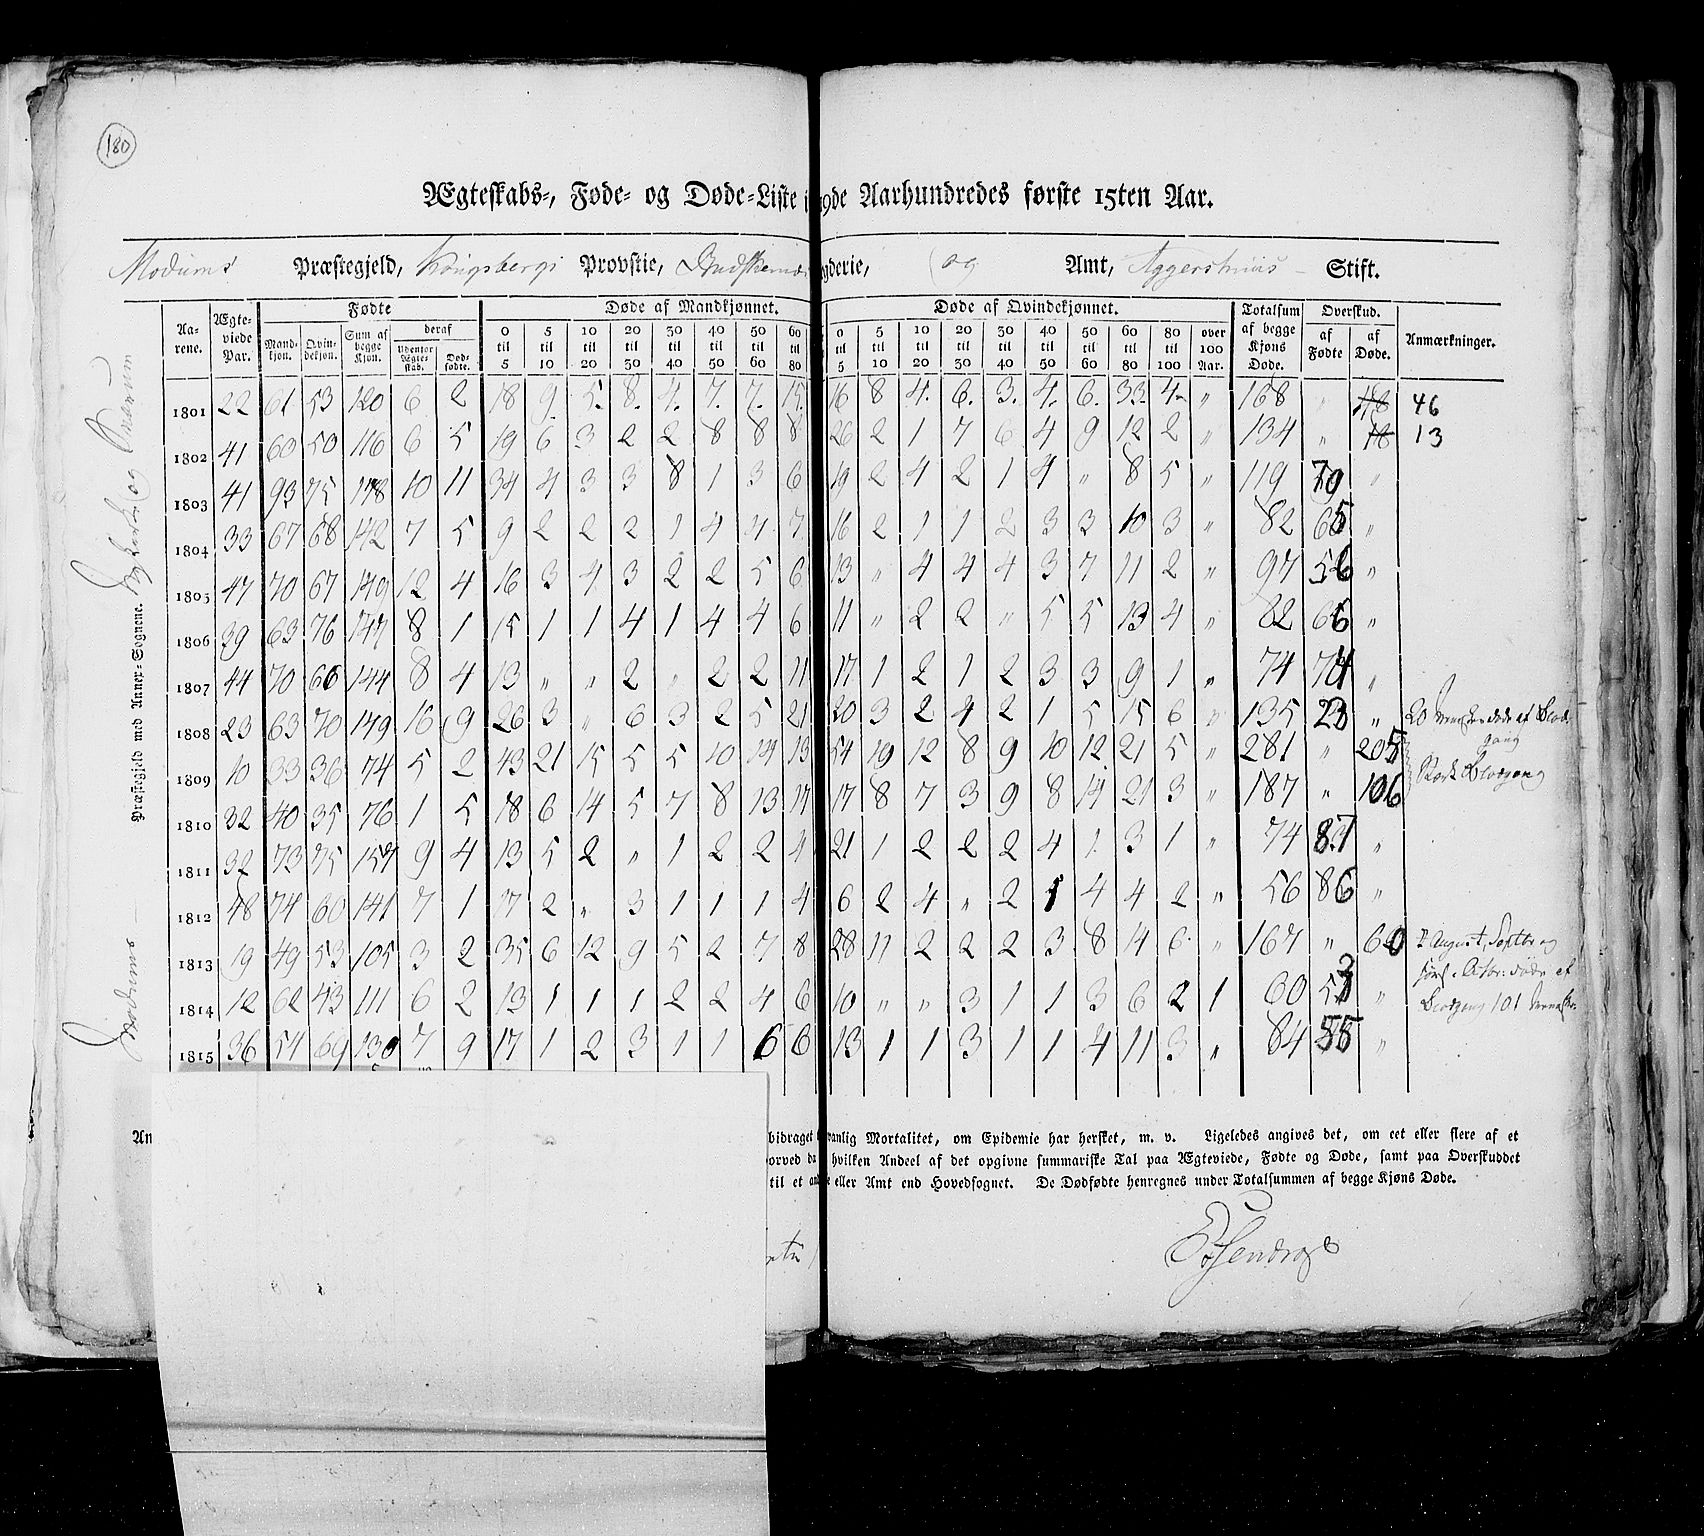 180
Ægteskabs-, Føde- og Døde-Liste i 19de Aarhundredes første 15ten Aar.
Modums Præstegjeld, Kongsbergs Provstie, gderie, og Amt, Aggershuus Stift.
Aa-rene. Ægte-viede Par. Fødte Døde af Mandkjønnet. Døde af Qvindekjønnet. Totalsum af begge Kjøns Døde. Overskud. Anmærkninger.
Mand-kjøn. Qvin-dekjøn. Sum af begge Kjøn. deraf af Fødte af Døde.
Udenfor Ægte-skab. Død-fødte.
0 til 5 5 til 10 10 til 20 20 til 30 30 til 40 40 til 50 50 til 60 60 til 80 0 til 5 5 til 10 10 til 20 20 til 30 30 til 40 40 til 50 50 til 60 60 til 80 80 til 100 over 100 Aar.
1801 22 61 53 120 6 2 18 9. 5. 8. 4. 7. 7. 15. 16 8 4. 6. 3. 4. 6. 33. 4. " 168 " 48 46
1802 41 60 50 116 6 5 19 6 3 2 2 8 8 8 26 2 1 7 6 4 9 12 2 " 134 " 18 13
1803 41 93 75 178 10 11 34 4 3 3 8 1 3 6 19 2 4 2 1 4 " 8 5 " 119 "
1804 33 67 68 142 7 5 9 2 2 2 1 4 4 7 16 2 1 1 2 3 3 10 3 " 82 65 "
1805 47 70 67 149 12 4 16 3 4 3 2 2 5 6 13 " 4 4 4 3 7 11 2 " 97 56 "
1806 39 63 76 147 8 1 15 1 1 4 1 4 4 6 11 " 2 2 " 5 5 13 4 " 82 66 "
1807 44 70 66 144 8 4 13 " " 2 " 2 2 11 17 1 2 1 2 3 3 9 1 " 74 74 "
1808 23 63 70 149 16 9 26 3 " 6 3 2 5 21 20 3 2 4 2 1 5 15 6 " 135 23 " 20 døde af Blod-
gang
1809 10 33 36 74 5 2 43 21 15 5 5 10 14 13 54 19 12 8 9 10 12 21 5 " 281 " 205 Stærk Blodgang
1810 32 40 35 76 1 5 18 6 14 5 7 8 13 14 17 8 7 3 9 8 14 21 3 " 187 " 106
1811 32 73 75 157 9 4 13 5 2 " 1 2 2 4 21 1 2 2 2 4 1 3 1 " 74 87 "
1812 48 74 60 141 7 1 17 2 " 3 1 1 1 4 6 2 4 " 2 1 4 4 2 " 56 86 "
1813 19 49 53 105 3 2 35 6 12 9 5 2 7 8 28 11 2 2 2 3 8 14 6 " 167 " 60 I August, Septbr og
døde af
1814 12 62 43 111 6 2 13 1 1 1 2 2 4 6 10 " " 3 1 1 3 6 2 1 60 53 " Blodgang 101
1815 36 54 69 130 7 9 17 1 2 3 1 1 6 6 13 1 1 3 1 1 4 11 3 " 84 55 "
Præstegjeld med Anner-Sognene.
Modums
og Snarum
An
bidraget
anlig Mortalitet, om Epidemie har hersket, m. v. Ligeledes angives det, om eet eller flere af et
orved
hvilken Andeel af det opgivne summariske Tal paa Ægteviede, Fødte og Døde, samt paa Overskuddet
til et
eller Amt end Hovedsognet. De Dødfødte henregnes under Totalsummen af begge Kjøns Døde.